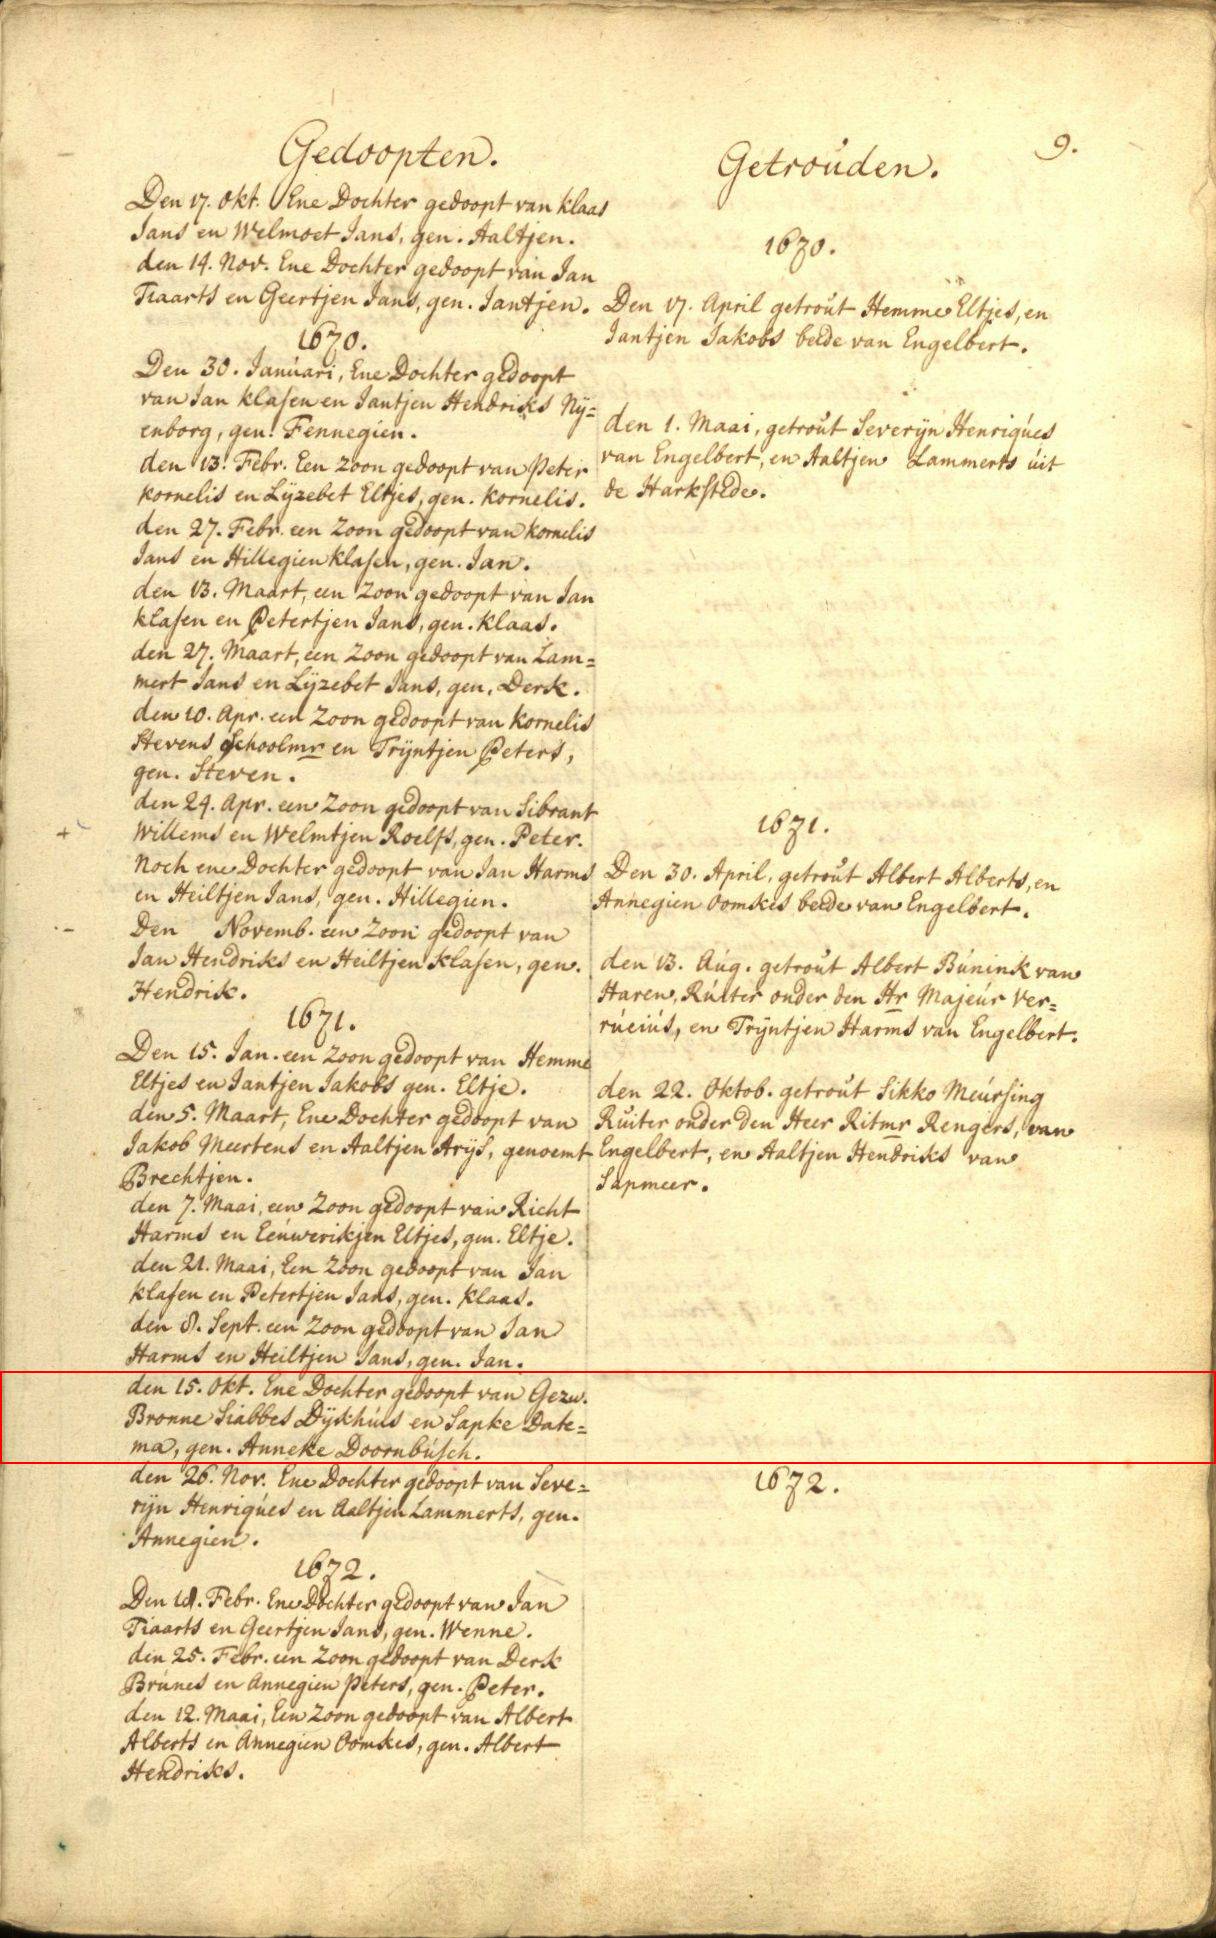 Gedoopten.
Den 17. Okt. Ene Dochter gedoopt van Klaas
Jans en Welmoet Jans, gen. Aaltjen.
den 14. Nov. Ene Dochter gedoopt van Jan
Tiaarts en Geertjen Jans, gen. Jantjen.
1670.
Den 30. Januari, Ene Dochter gedoopt
van Jan Klasen en Jantjen Hendriks Nij=
enborg, gen. Fennegien.
den 13. Febr. Een Zoon gedoopt van Peter
Kornelis en Lijzebet Eltjes, gen. Kornelis.
den 27. Febr. een Zoon gedoopt van Kornelis
Jans en Hillegien Klasen, gen. Jan.
den 13. Maart, een Zoon gedoopt van Jan
Klasen en Petertjen Jans, gen. Klaas.
den 27. Maart, een Zoon gedoopt van Lam=
mert Jans en Lijzebet Jans, gen. Derk.
den 10. Apr. een Zoon gedoopt van Kornelis
Stevens Schoolmr en Trijntjen Peters,
gen. Steven.
den 24. Apr. een Zoon gedoopt van Sibrant
Willems en Welmtjen Roelfs, gen. Peter.
Noch ene Dochter gedoopt van Jan Harms
en Heiltjen Jans, gen. Hillegien.
Den Novemb. een Zoon gedoopt van
Jan Hendriks en Heiltjen Klasen, gen.
Hendrik.
1671.
Den 15. Jan. een Zoon gedoopt van Hemme
Eltjes en Jantjen Jakobs gen. Eltje.
den 5. Maart, Ene Dochter gedoopt van
Jakob Meertens en Aaltjen Arijs, genoemt
Brechtjen.
den 7. Maai, een Zoon gedoopt van Richt
Harms en Eeuwerikjen Eltjes, gen. Eltje.
den 21. Maai, Een Zoon gedoopt van Jan
Klasen en Petertjen Jans, gen. Klaas.
den 8. Sept. een Zoon gedoopt van Jan
Harms en Heiltjen Jans, gen. Jan.
den 15. Okt. Ene Dochter gedoopt van Gezw.
Bronne Siabbes Dijkhuis en Sapke Date=
ma, gen. Anneke Doornbusch.
den 26. Nov. Ene Dochter gedoopt van Seve=
rijn Henriques en Aaltjen Lammerts, gen.
Annegien.
1672.
Den 18. Febr. Ene Dochter gedoopt van Jan
Tiaarts en Geertjen Jans, gen. Wenne.
den 25. Febr. een Zoon gedoopt van Derk
Brunes en Annegien Peters, gen. Peter.
den 12. Maai, Een Zoon gedoopt van Albert
Alberts en Annegien Oomkes, gen. Albert
Hendriks.
9.
Getrouden.
1670.
Den 17. April getrout Hemme Eltjes, en
Jantjen Jakobs beede van Engelbert.
den 1. Maai, getrout Severijn Henriques
van Engelbert, en Aaltjen Lammerts uit
de Harkstede.
1671.
Den 30. April, getrout Albert Alberts, en
Annegien Oomkes beede van Engelbert.
den 13. Aug. getrout Albert Bunink van
Haren, Ruiter onder den Hr Majeur Ver=
rucius, en Trijntjen Harms van Engelbert.
den 22. Oktob. getrout Sikko Meursing
Ruiter onder den Heer Ritmr Rengers, van
Engelbert, en Aaltjen Hendriks van
Sapmeer.
1672.